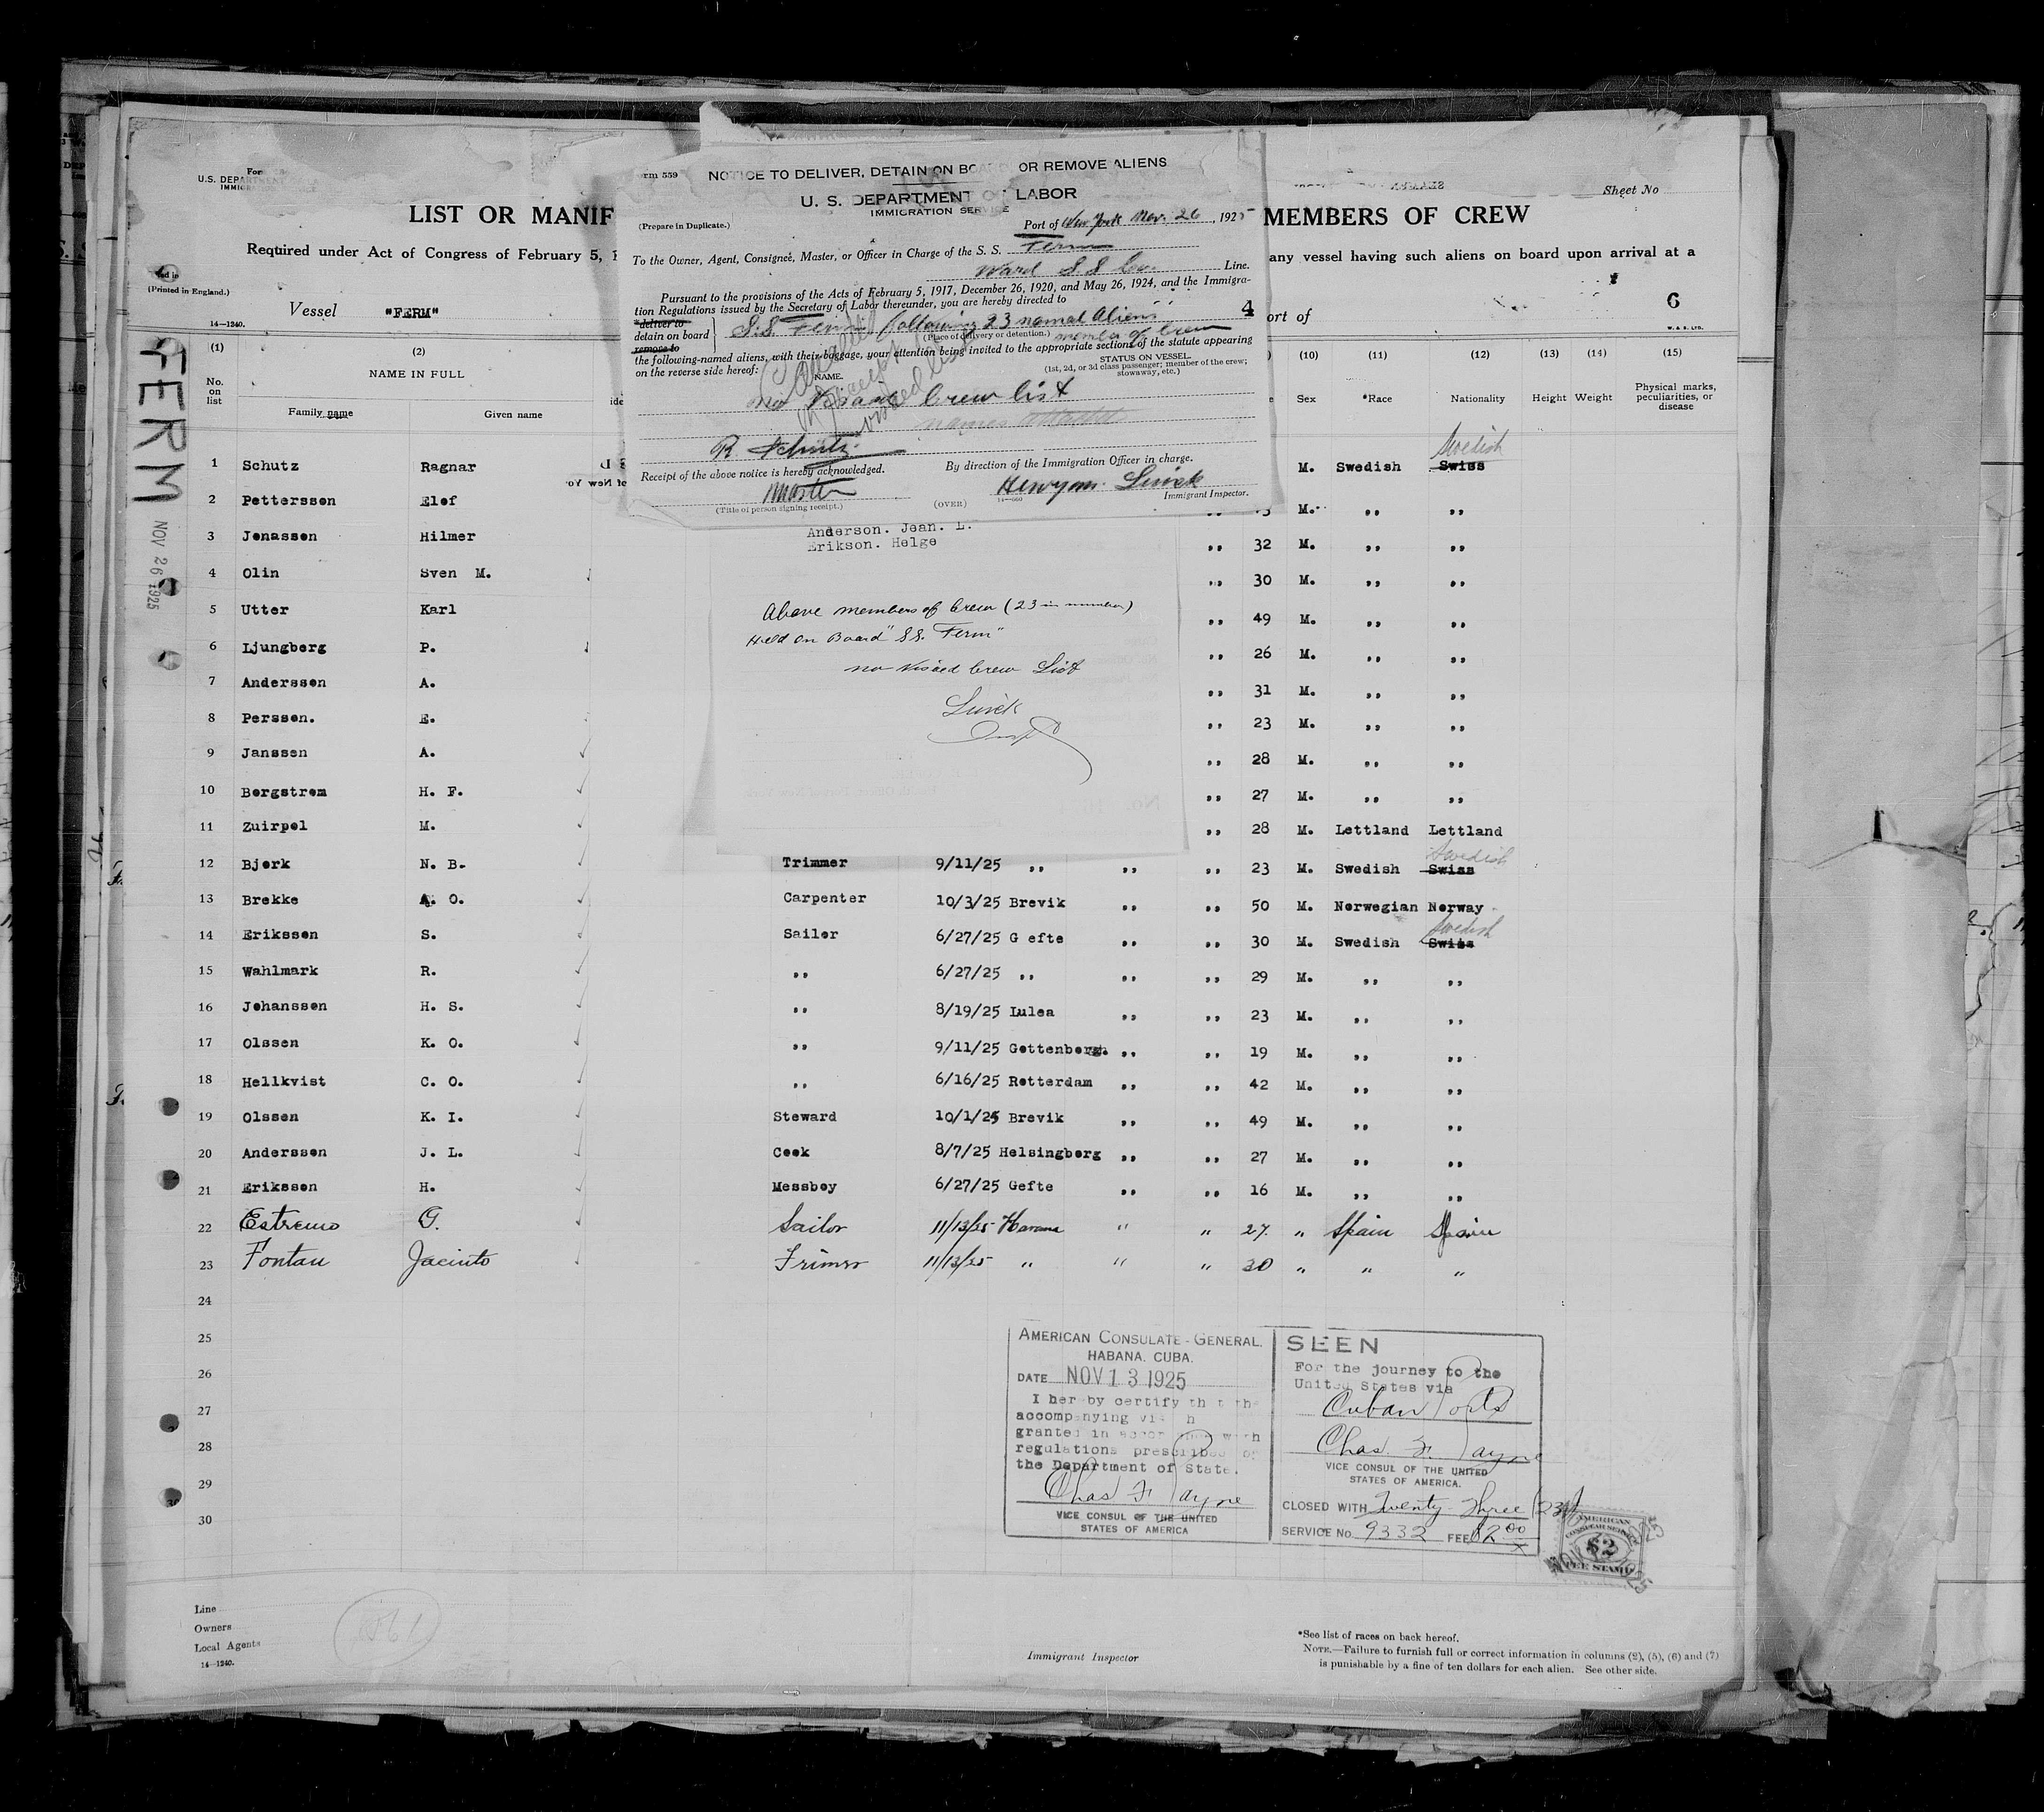 Form 559
NOTICE TO DELIVER, DETAIN ON BOARD OR REMOVE ALIENS
U. S. DEPARTMENT OF LABOR
IMMIGRATION SERVICE
(Prepare in Duplicate.)
Port of New York Nov. 26, 1925
To the Owner, Agent, Consignee, Master, or Officer in Charge of the S. S. Ferm
Ward S S Co. Line.
Pursuant to the provisions of the Acts of February 5, 1917, December 26, 1920, and May 26, 1924, and the Immigra-
tion Regulations issued by the Secretary of Labor thereunder, you are hereby directed to
*deliver to
detain on board
remove to
S.S. Ferm following 23 named Aliens
(Place of delivery or detention.) member of crew
the following-named aliens, with their baggage, your attention being invited to the appropriate sections of the statute appearing
on the reverse side hereof:
NAME.
STATUS ON VESSEL
(1st, 2d, or 3d class passenger; member of the crew;
stowaway, etc.)
no Visaed Crew list
names attached
R Schütz
Receipt of the above notice is hereby acknowledged.
By direction of the Immigration Officer in charge.
Master
(Title of person signing receipt.)
(OVER)
Immigrant Inspector.
Anderson. Jean. L.
Erikson. Helge
Above members of Crew (23 in number)
Held on Board "SS. Ferm"
no Visaed Crew List
U.S. DEPARTMENT
LIST OR MANIF
MEMBERS OF CREW
Sheet No
Required under Act of Congress of February 5, 1
any vessel having such aliens on board upon arrival at a
(Printed in England.)
Vessel "FERM"
ort of
4
6
14—1240.
W. & S. LTD.
FERM
NOV 26 1925
(1) (2) (10) (11) (12) (13) (14) (15)
No. on list
NAME IN FULL
Family name Given name
Sex *Race Nationality Height Weight Physical marks, peculiarities, or disease
1 Schutz Ragnar M. Swedish Swiss Swedish
2 Pettersson Elof M. ,, ,,
3 Jonasson Hilmer ,, 32 M. ,, ,,
4 Olin Sven M. ,, 30 M. ,, ,,
5 Utter Karl ,, 49 M. ,, ,,
6 Ljungberg P. ,, 26 M. ,, ,,
7 Andersson A. ,, 31 M. ,, ,,
8 Persson. E. ,, 23 M. ,, ,,
9 Janssen A. ,, 28 M. ,, ,,
10 Bergstrom H. F. ,, 27 M. ,, ,,
11 Zuirpel M. ,, 28 M. Lettland Lettland
12 Bjork N. B. Trimmer 9/11/25 ,, ,, ,, 23 M. Swedish Swiss Swedish
13 Brekke A. O. Carpenter 10/3/25 Brevik ,, ,, 50 M. Norwegian Norway
14 Erikssen S. Sailor 6/27/25 G efte ,, ,, 30 M. Swedish Swiss Swedish
15 Wahlmark R. ,, 6/27/25 ,, ,, ,, 29 M. ,, ,,
16 Johanssen H. S. ,, 8/19/25 Lulea ,, ,, 23 M. ,, ,,
17 Olssen K. O. ,, 9/11/25 Gottenborgh. ,, ,, 19 M. ,, ,,
18 Hellkvist C. O. ,, 6/16/25 Rotterdam ,, ,, 42 M. ,, ,,
19 Olssen K. I. Steward 10/1/25 Brevik ,, ,, 49 M. ,, ,,
20 Anderssen J. L. Cook 8/7/25 Helsingborg ,, ,, 27 M. ,, ,,
21 Erikssen H. Messboy 6/27/25 Gefte ,, ,, 16 M. ,, ,,
22 Estremo G. Sailor 11/13/25 Havana " " 27. " Spain Spain
23 Fontau Jacinto Trimer 11/13/25 " " " 30 " " "
24
25
26
27
28
29
30
AMERICAN CONSULATE-GENERAL.
HABANA. CUBA.
DATE NOV 13 1925
I her by certify th t the
accompanying vis h
granted in accor nce with
regulations prescribed by
the Department of State.
Chas F Payne
VICE CONSUL OF THE UNITED
STATES OF AMERICA
SEEN
For the journey to the
United States via
Cuban Ports
Chas. F. Payne
VICE CONSUL OF THE UNITED
STATES OF AMERICA.
CLOSED WITH Twenty-Three (23)
SERVICE No. 9332 FEE $2.00
AMERICAN
CONSULAR SERVICE
$2
FEE STAMP
Line
Owners
Local Agents
14—1240.
Immigrant Inspector
*See list of races on back hereof.
NOTE.—Failure to furnish full or correct information in columns (2), (5), (6) and (7)
is punishable by a fine of ten dollars for each alien. See other side.